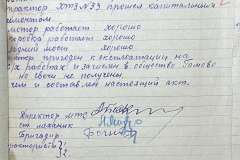 трактор ХТЗ №33 прошел капитальным
ремонтом
мотор работает хорошо
коробка работает хорошо
задний мост хорошо
пригоден к эксплоатации на
с/х работах и зачислен в общество
но свечи не получены,
чем и составлен настоящий акт.
Директор мтс
ст механик
Бригадир